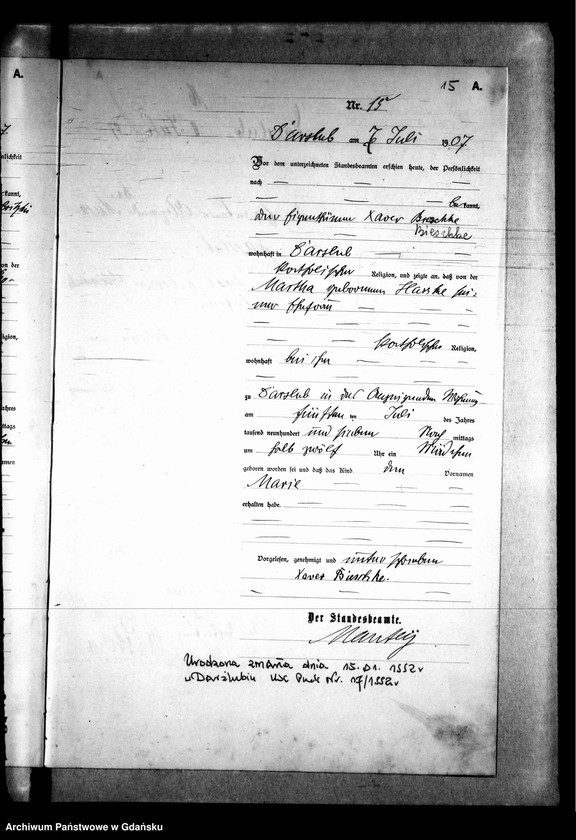 A.
15 A.
Nr. 15
Darslub am 7 Juli 1907
Vor dem unterzeichneten Standesbeamten erschien heute, der Persönlichkeit
nach
bekannt,
der Eigenthümer Xaver Bieschke
Bieschke
wohnhaft in Darslub
katholischer Religion, und zeigte an, daß von der
Martha geborenen Hasske sei-
ner Ehefrau
katholischer Religion,
wohnhaft bei ihm
zu Darslub in des Anzeigenden Wohnung
am fünften Juli des Jahres
tausend neunhundert und sieben Nachmittags
um halb zwölf Uhr ein Mädchen
geboren worden sei und daß das Kind den Vornamen
Marie
erhalten habe.
Vorgelesen, genehmigt und unterschrieben
Xaver Bieschke.
Der Standesbeamte.
Urodzona zmarła dnia 15.01.1992 r
w Darzlubiu USC Puck Nr. 17/1992 r
Archiwum Państwowe w Gdańsku